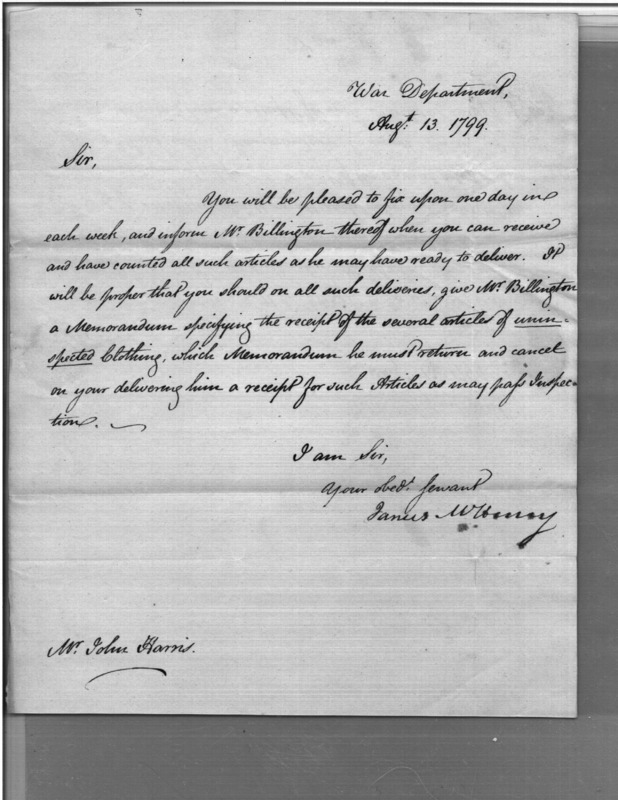 War Department,
Augt. 13. 1799.
Sir,
You will be pleased to fix upon one day in
each week, and inform Mr. Billington thereof when you can receive
and have counted all such articles as he may have ready to deliver. It
will be proper that you should on all such deliveries, give Mr. Billington
a Memorandum specifying the receipt of the several articles of unin-
spected Clothing, which Memorandum he must return and cancel
on your delivering him a receipt for such Articles as may pass Inspec-
tion.
I am Sir,
Your obedt. Servant
James McHenry
Mr. John Harris.